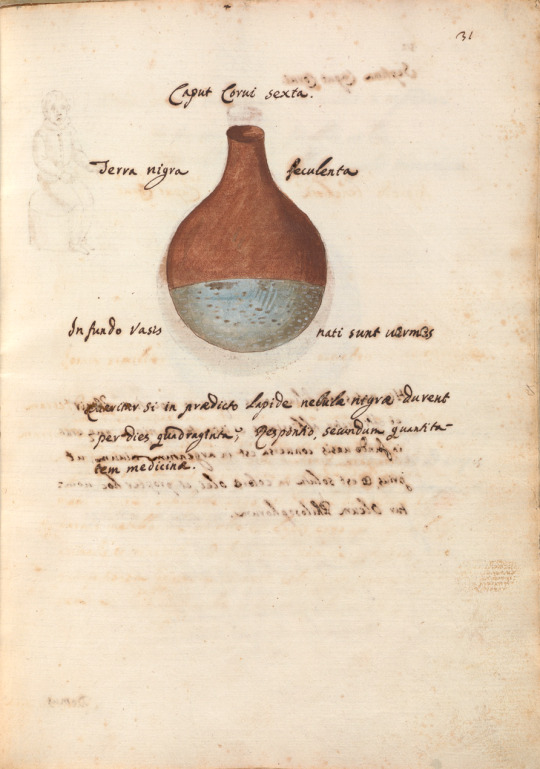 31
Caput Corui sexta.
Terra nigra feculenta
In fundo vasis nati sunt uermes
Quæritur si in prædicto lapide nebulæ nigræ durent
per dies quadraginta; Responsio, secundum quantita-
tem medicinæ.